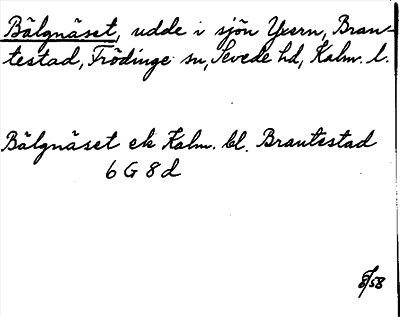 Bälgnäset, udde i sjön Yxern, Bran-
testad, Frödinge sn, Sevede hd, Kalm. l.
Bälgnäset ek Kalm. bl. Brantestad
6 G 8 d
8/58